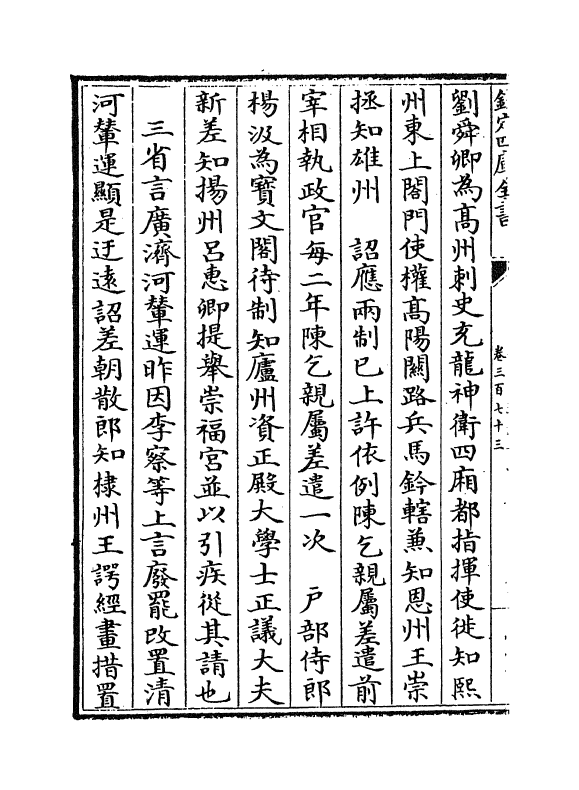 欽定四庫全書
卷三百七十三
劉舜卿為髙州刺史充龍神衛四廂都指揮使徙知熙
州東上閤門使權髙陽關路兵馬鈐轄兼知恩州王崇
拯知雄州　詔應兩制已上許依例陳乞親屬差遣前
宰相執政官每二年陳乞親屬差遣一次　戸部侍郎
楊汲為寶文閣待制知廬州資正殿大學士正議大夫
新差知揚州呂惠卿提舉崇福宫並以引疾從其請也
三省言廣濟河輦運昨因李察等上言廢罷改置清
河輦運顯是迂遠詔差朝散郎知棣州王諤經畫措置